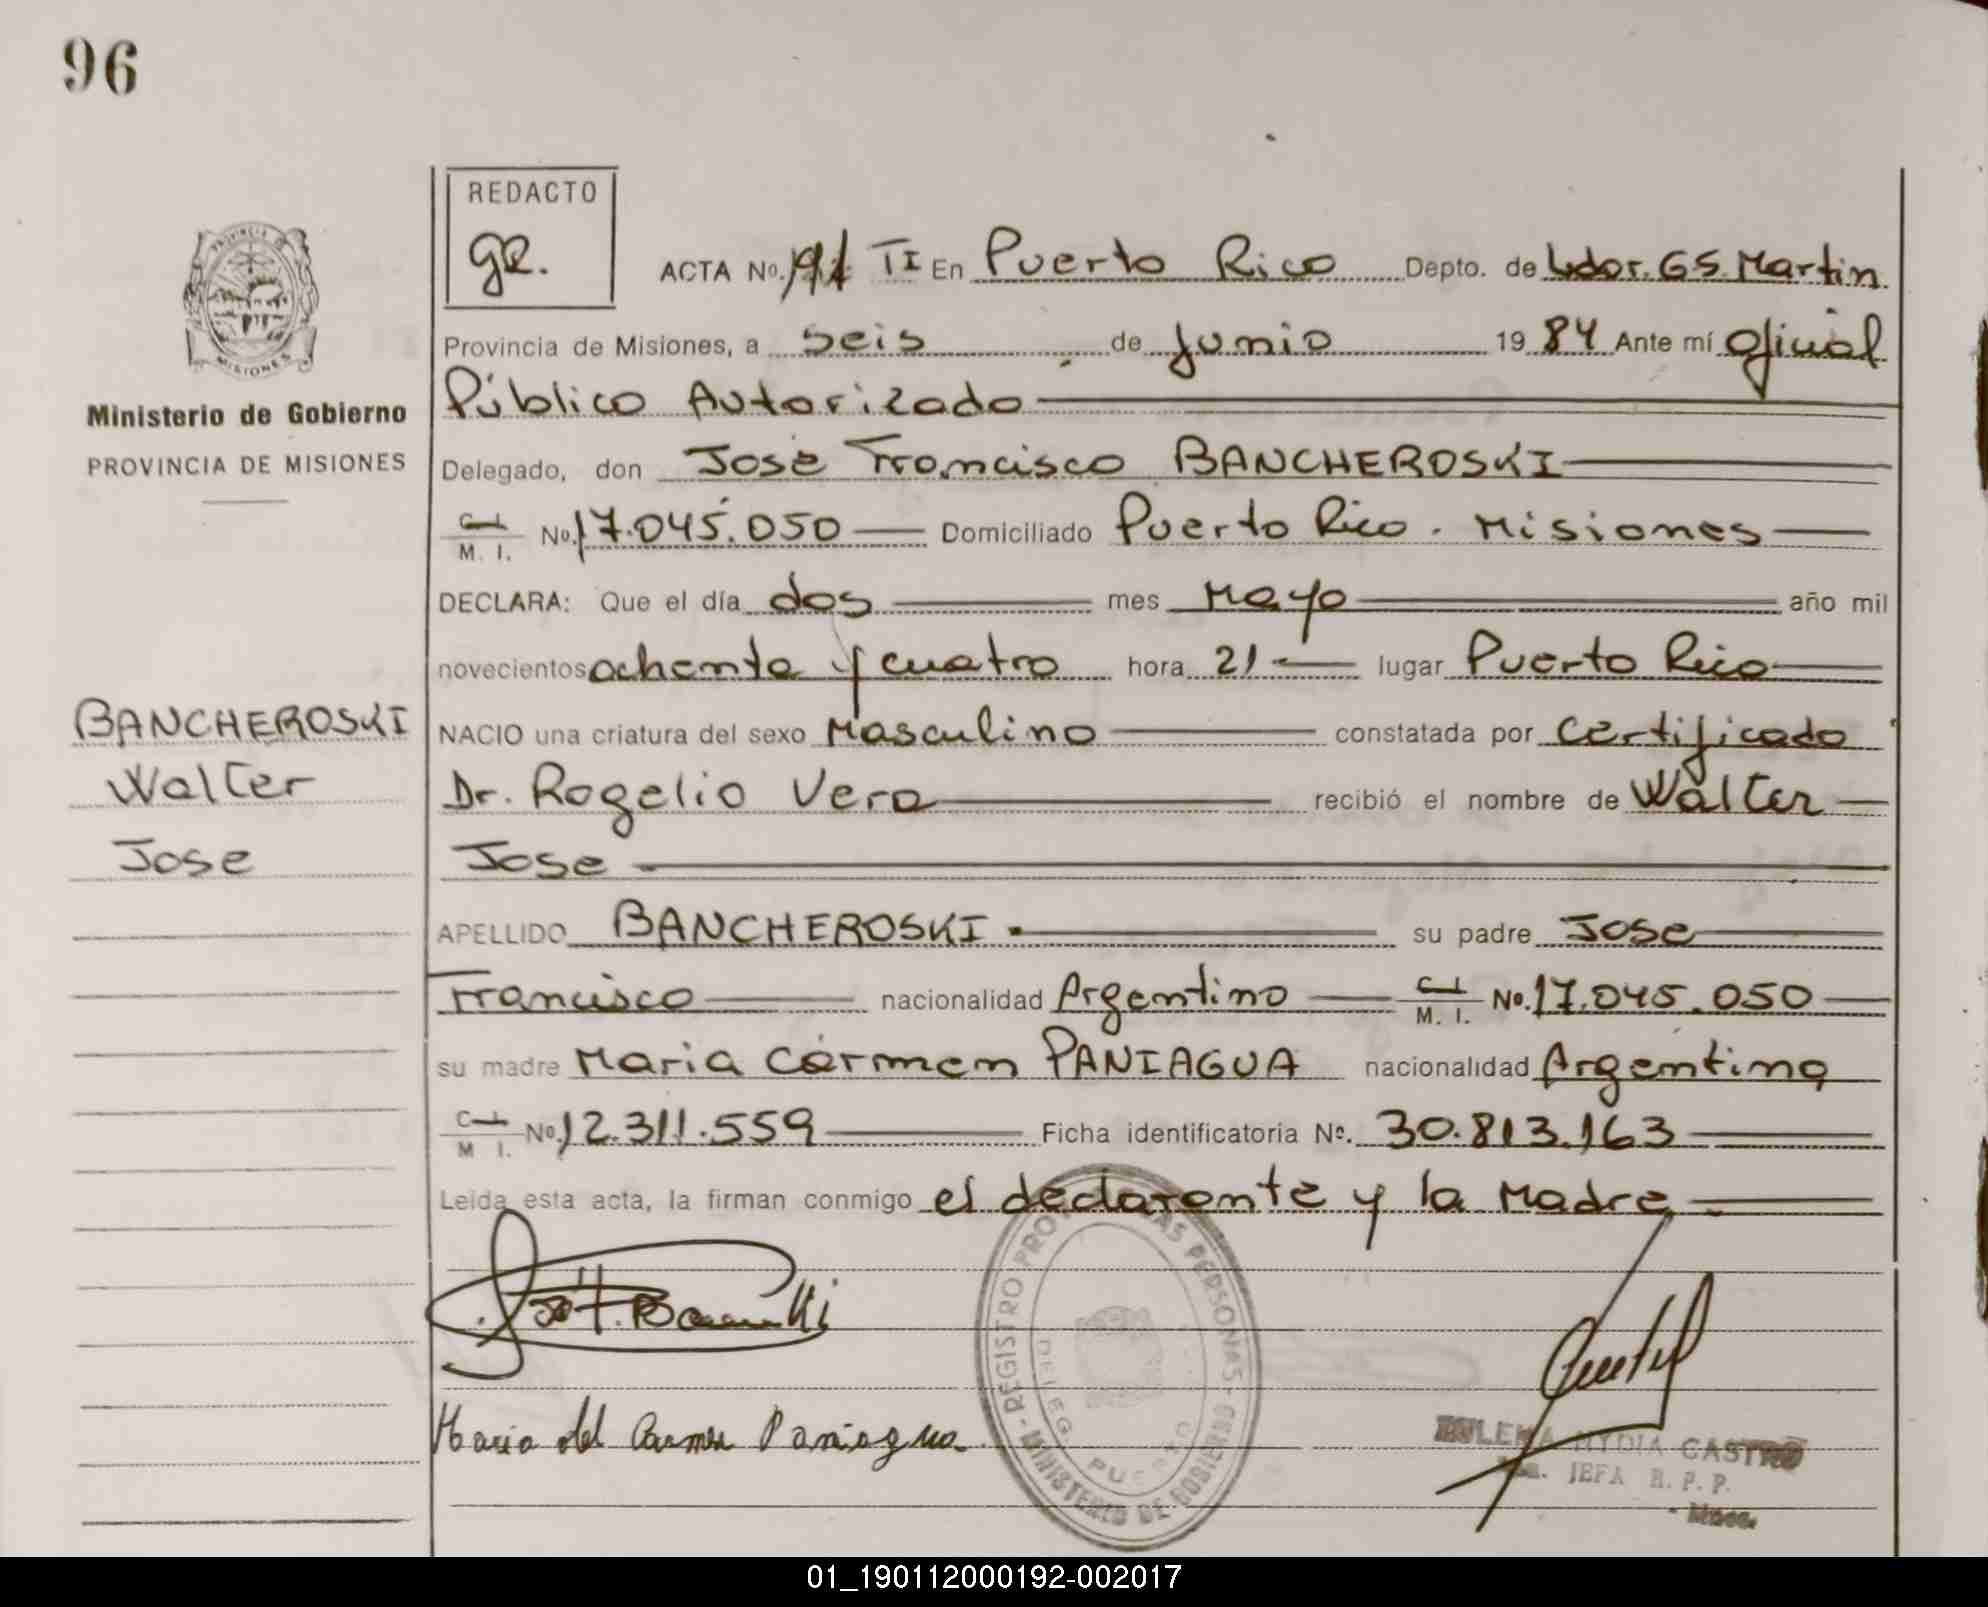 96
REDACTO
gR.
ACTA No. 191 TI En Puerto Rico Depto. de Ldor. G S. Martin
Provincia de Misiones, a seis de Junio 19 84 Ante mí Oficial
Público Autorizado
Delegado, don Jose Francisco BANCHEROSKI
C. I. / M. I. No. 17.045.050 Domiciliado Puerto Rico. Misiones
DECLARA: Que el día dos mes Mayo año mil
novecientos ochenta y cuatro hora 21 lugar Puerto Rico
NACIO una criatura del sexo Masculino constatada por Certificado
Dr. Rogelio Vera recibió el nombre de Walter
Jose
APELLIDO BANCHEROSKI su padre Jose
Francisco nacionalidad Argentino C. I. / M. I. No. 17.045.050
su madre Maria Carmen PANIAGUA nacionalidad Argentina
C. I. / M I. No. 12.311.559 Ficha identificatoria No. 30.813.163
Leida esta acta, la firman conmigo el declarante y la Madre
Maria del Carmen Paniagua
PROVINCIA DE
MISIONES
Ministerio de Gobierno
PROVINCIA DE MISIONES
BANCHEROSKI
Walter
Jose
REGISTRO PROV. PERSONAS - MINISTERIO DE GOBIERNO -
DELEG. PUERTO
CASTRO
JEFA R. P. P.
01_190112000192-002017